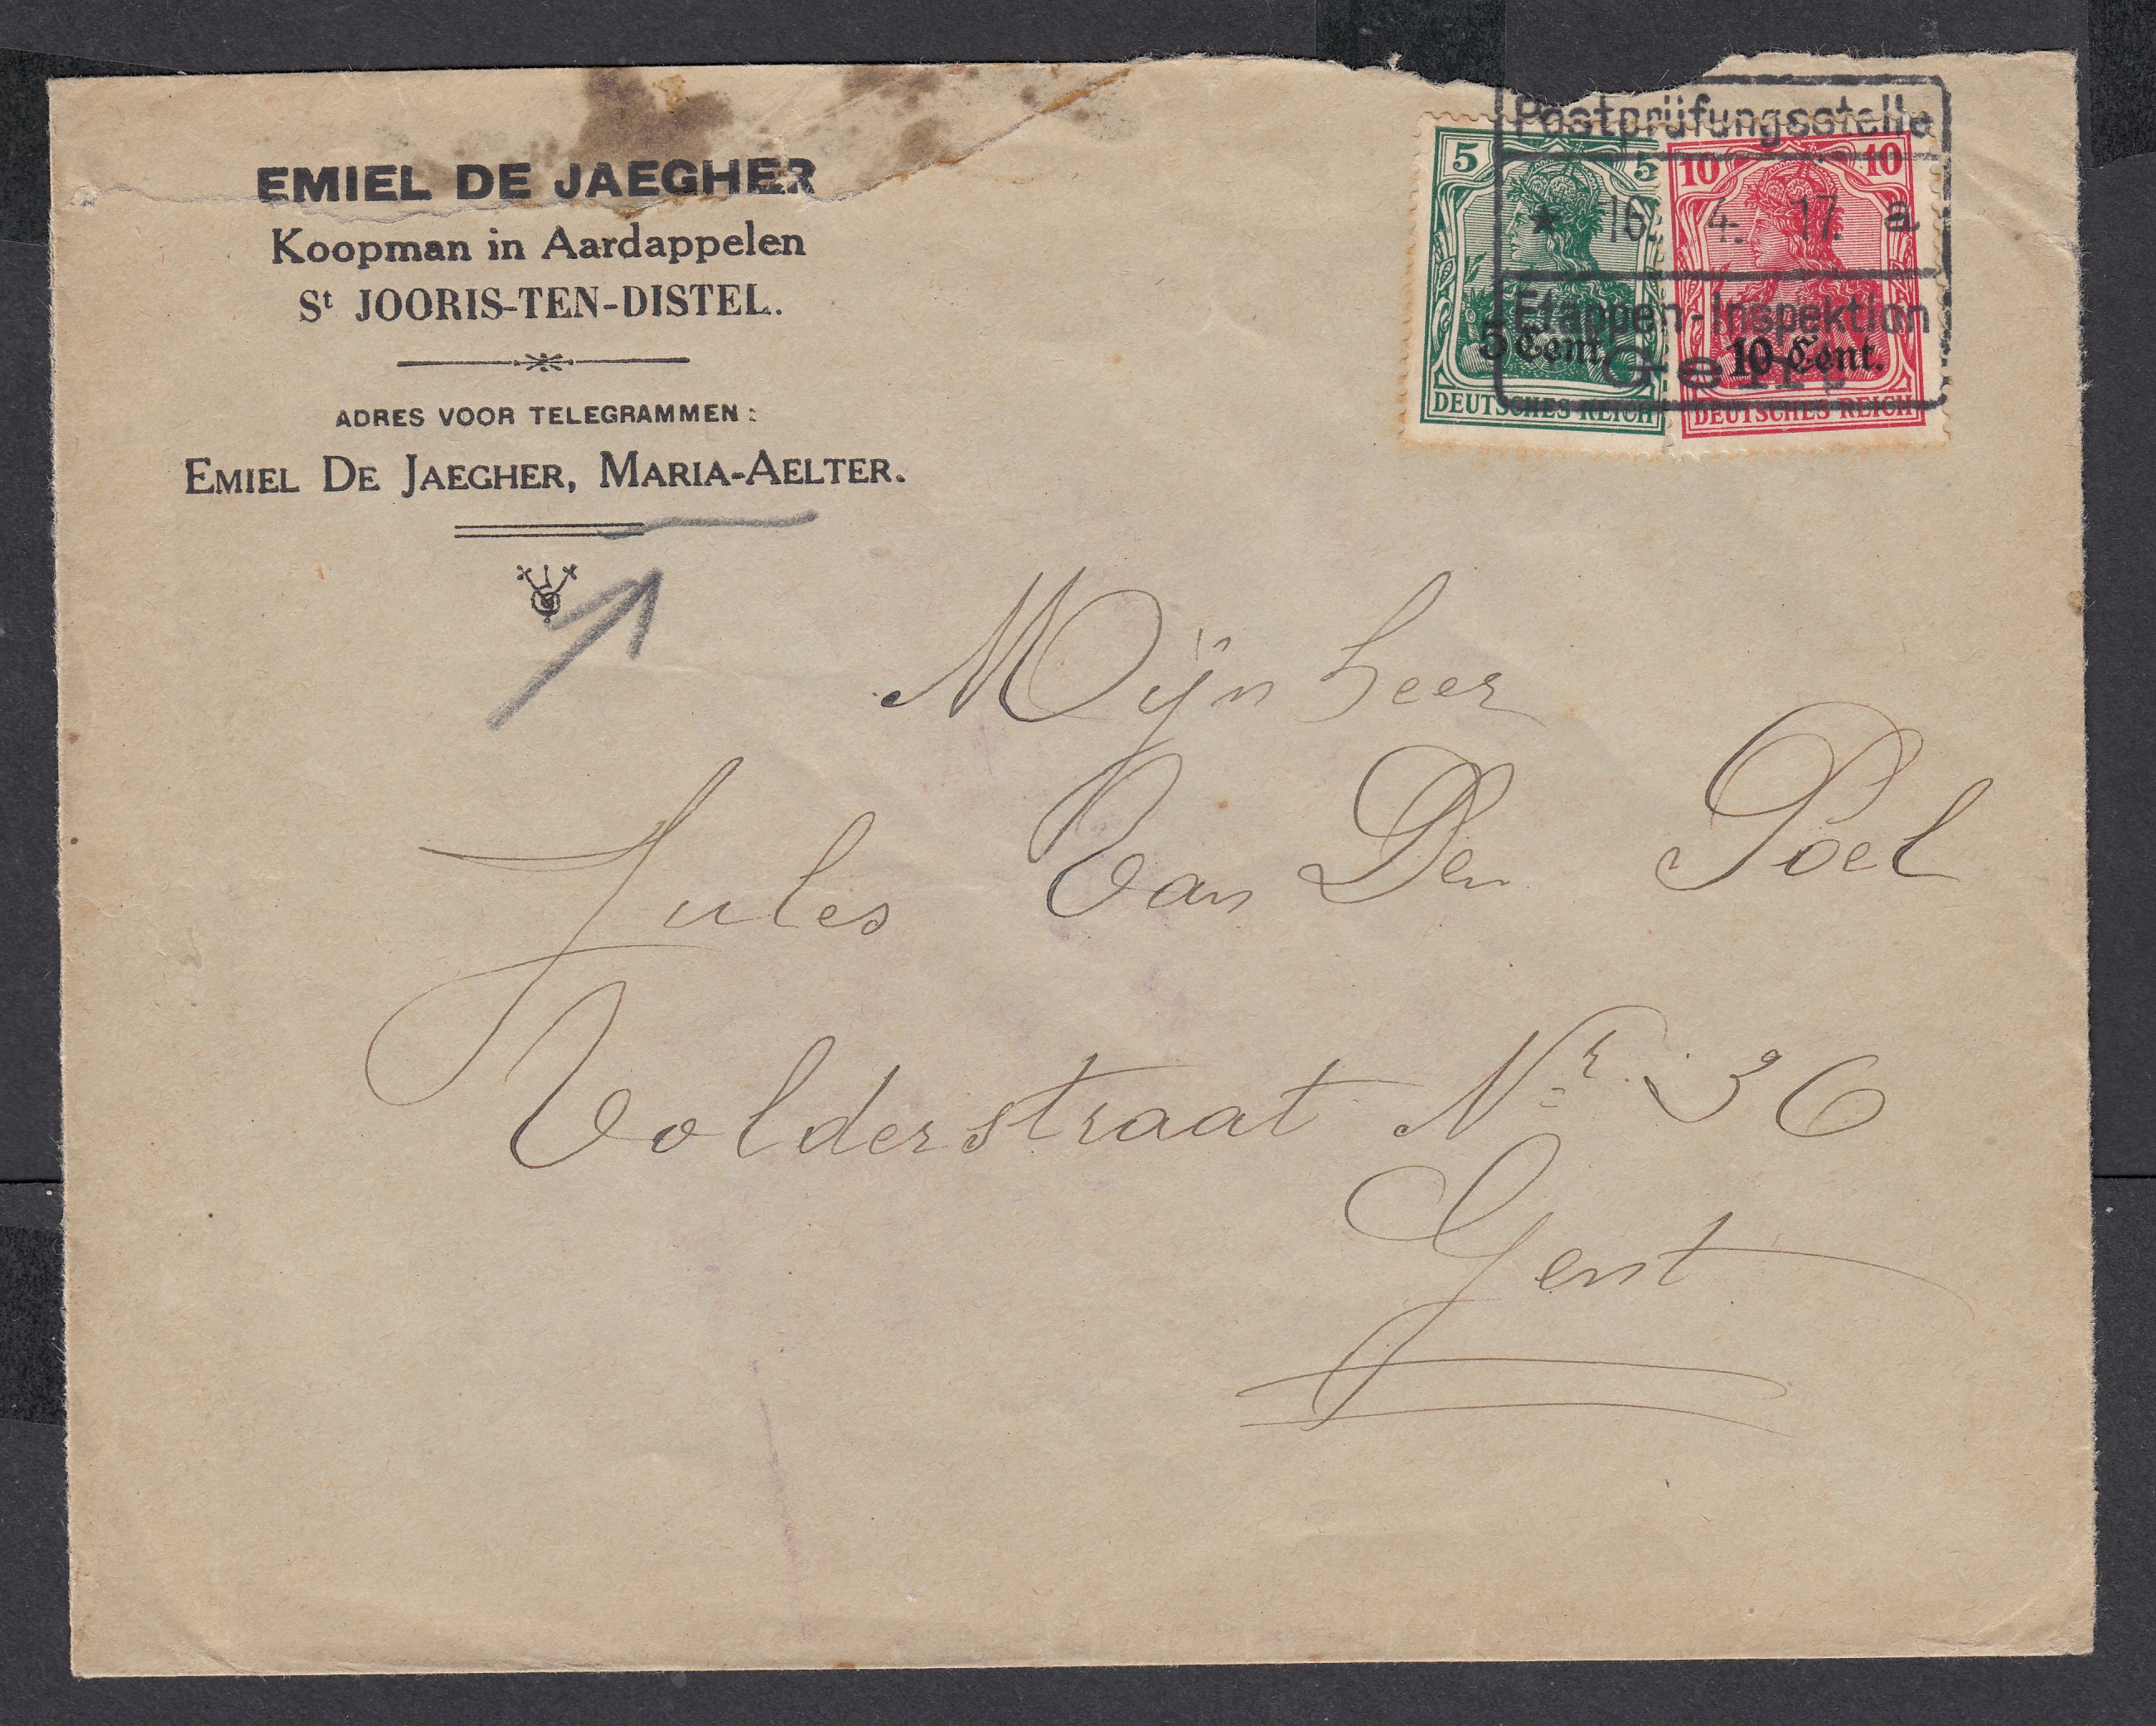 EMIEL DE JAEGHER
Koopman in Aardappelen
St JOORIS-TEN-DISTEL.
ADRES VOOR TELEGRAMMEN:
EMIEL DE JAEGHER, MARIA-AELTER.
Postprüfungsstelle
5 5 10 10
* 16. 4. 17. a
Etappen-Inspektion
5 Cent. 10 Cent.
Gent
DEUTSCHES REICH DEUTSCHES REICH
Mijnheer
Jules Van Den Poel
Volderstraat Nr. 36
Gent